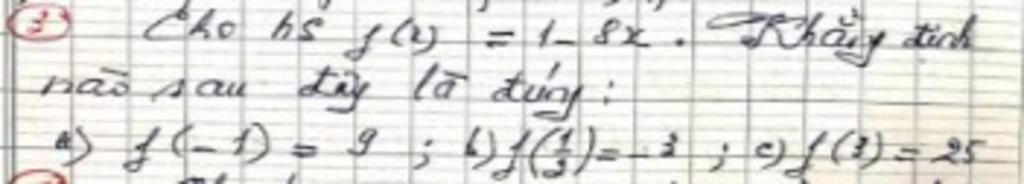 3 Cho hs f(x) = 1 - 8x. Khẳng định
nào sau đây là đúng:
a) f(-1) = 9 ; b) f(1/2) = -3 ; c) f(3) = 25